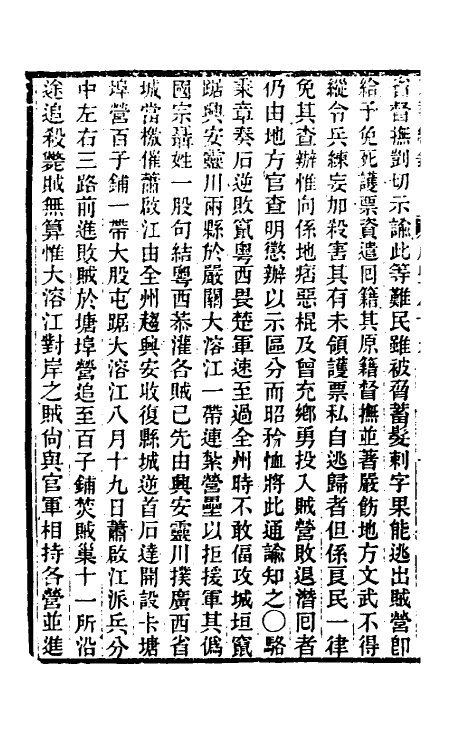 省督撫剴切示諭此等難民雖被脅蓄髮刺字果能逃出賊營卽
給予免死護票資遣囘籍其原籍督撫並著嚴飭地方文武不得
縱令兵練妄加殺害其有未領護票私自逃歸者但係良民一律
免其查辦惟向係地痞惡棍及曾充鄉勇投入賊營敗退潛囘者
仍由地方官查明懲辦以示區分而昭矜恤將此通諭知之〇駱
秉章奏石逆敗竄粵西畏楚軍速至過全州時不敢偪攻城垣竄
踞興安靈川兩縣於嚴關大溶江一帶連紮營壘以拒援軍其僞
國宗聶姓一股句結粵西恭灌各賊已先由興安靈川撲廣西省
城當檄催蕭啟江由全州趨興安收復縣城逆首石達開設卡塘
埠營百子鋪一帶大股屯踞大溶江八月十九日蕭啟江派兵分
中左右三路前進敗賊於塘埠營追至百子鋪焚賊巢十一所沿
途追殺斃賊無算惟大溶江對岸之賊尙與官軍相持各營並進